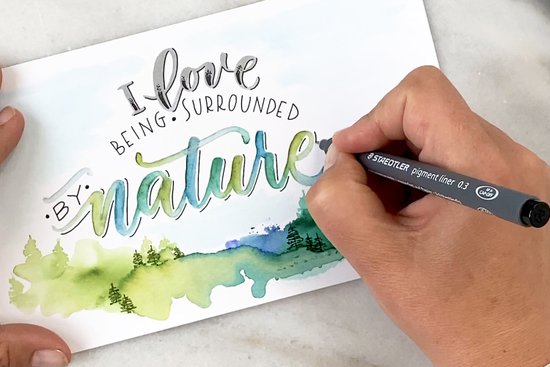 I love
BEING SURROUNDED
BY nature
STAEDTLER pigment liner 0.3